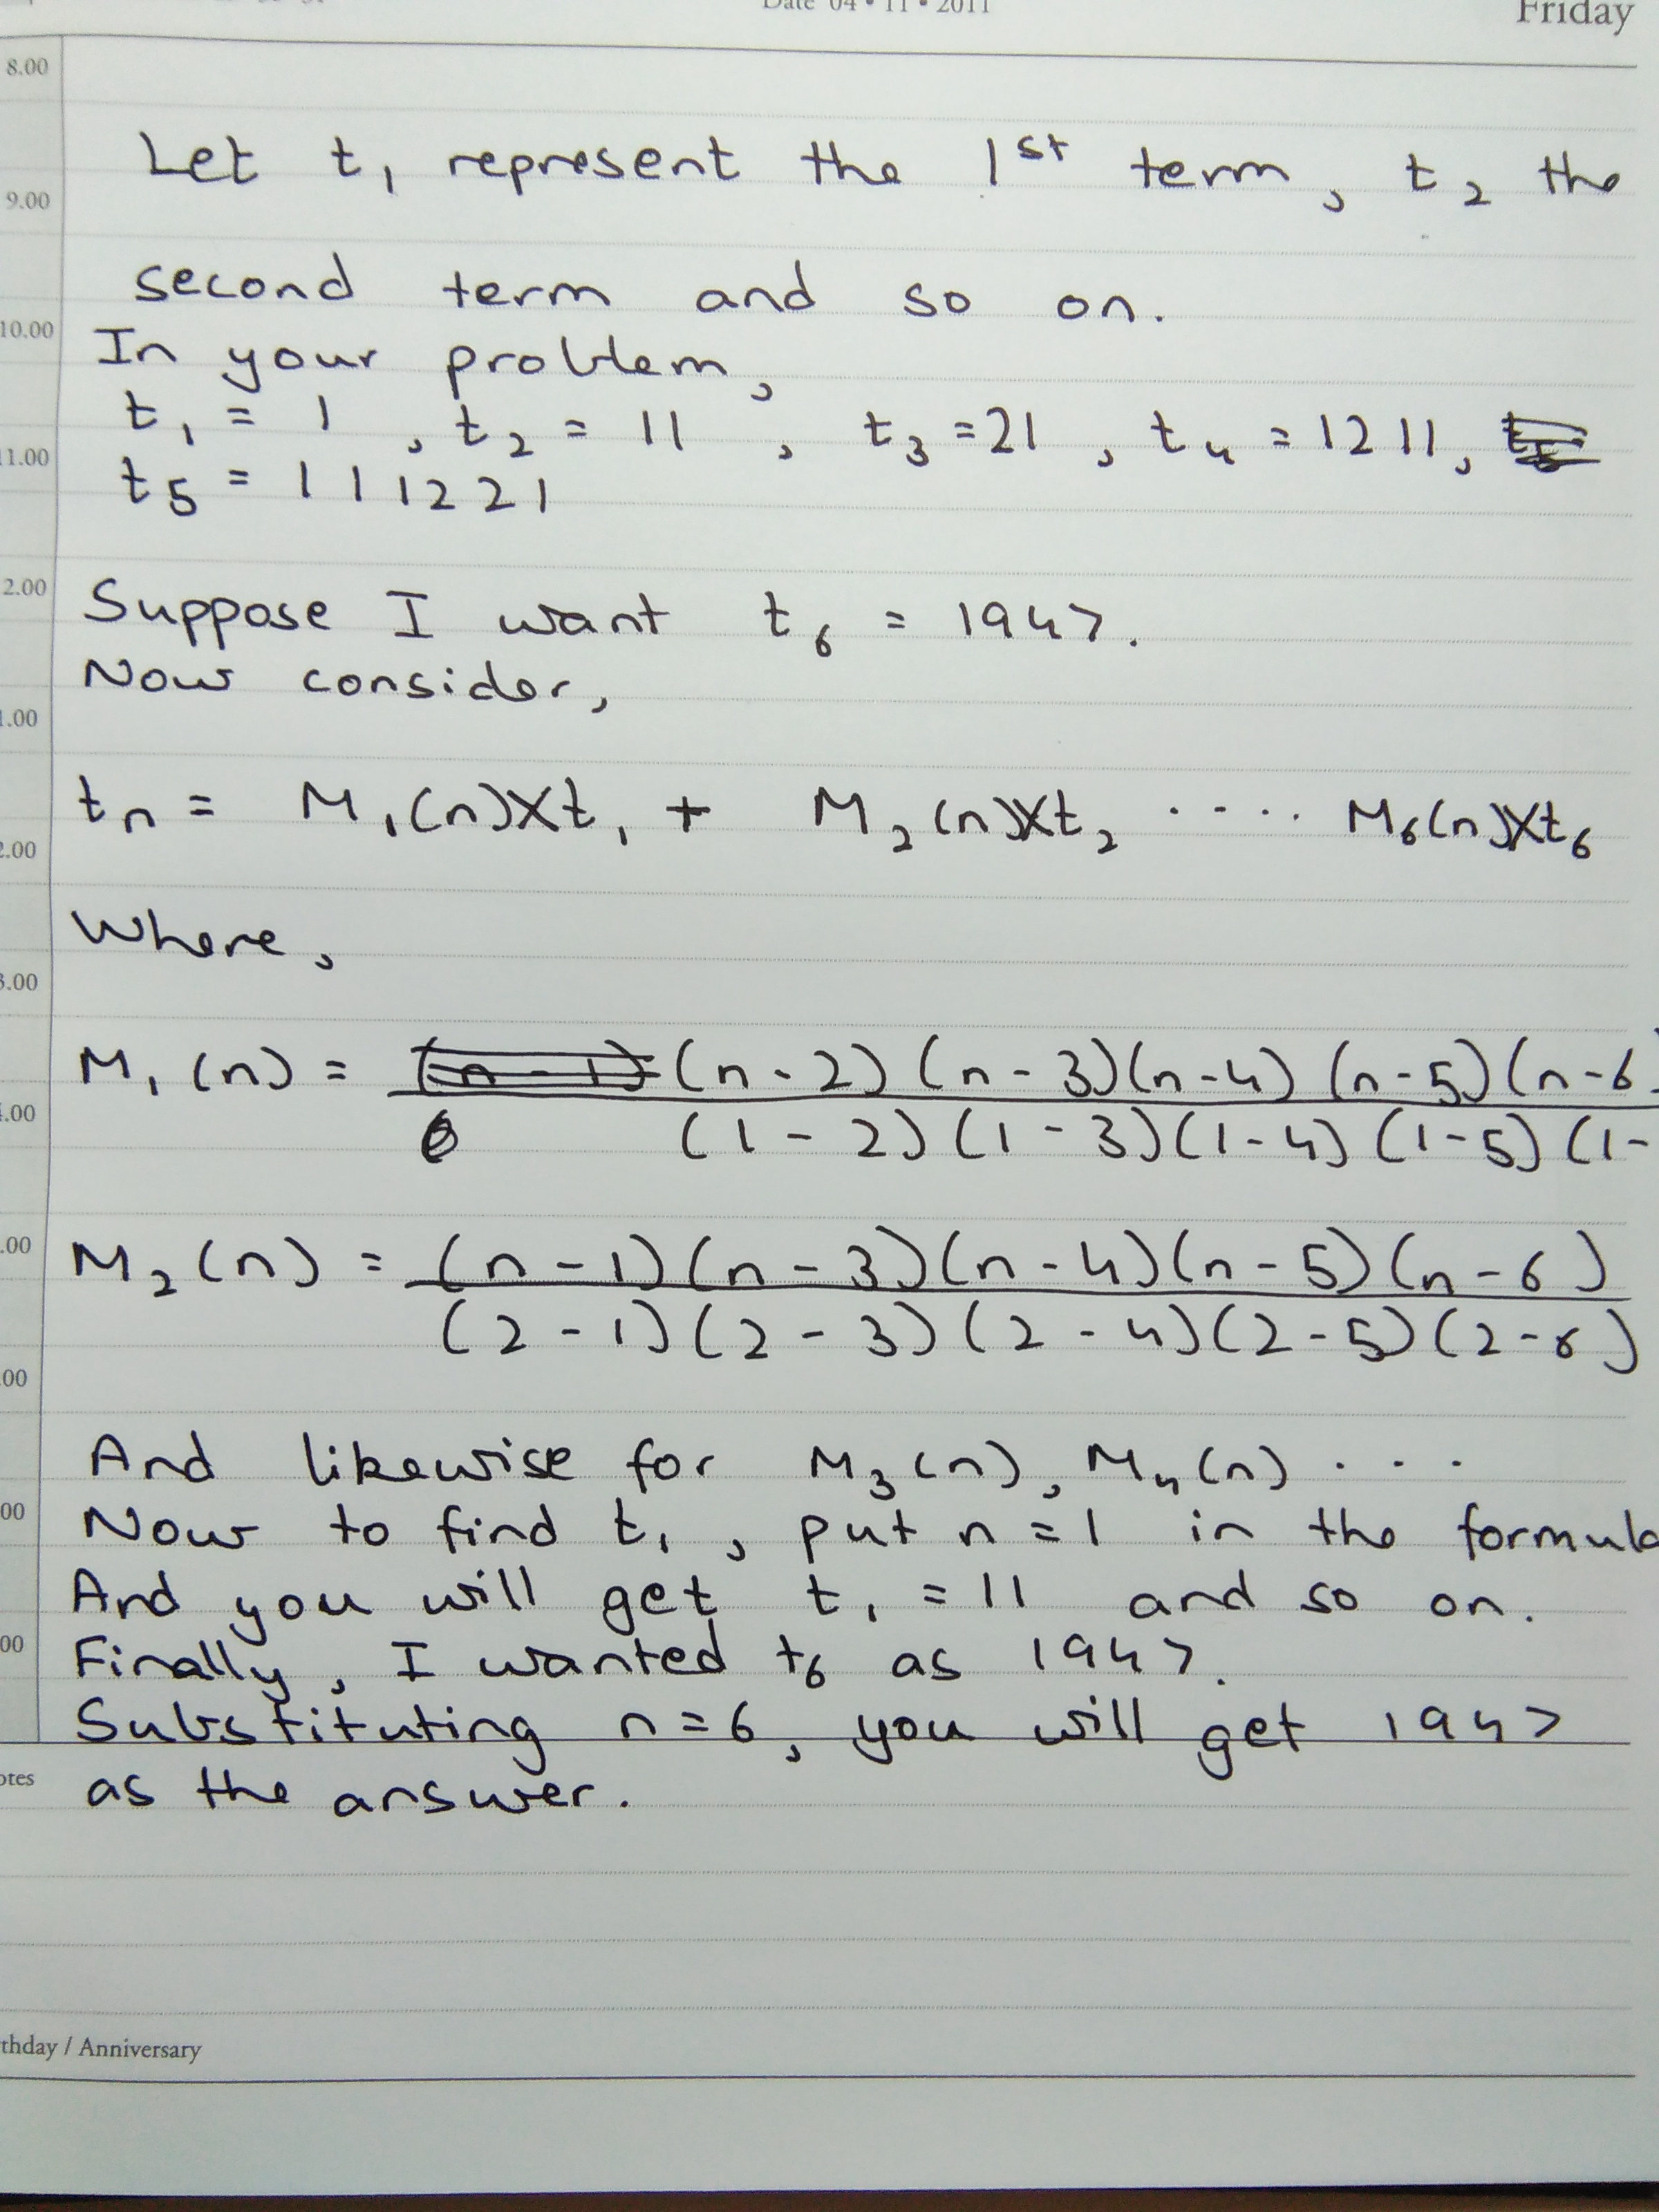 Date 04 • 11 • 2011
Friday
8.00
Let t₁ represent the 1st term, t₂ the
9.00
second term and so on.
10.00
In your problem,
t₁ = 1 , t₂ = 11 , t₃ = 21 , t₄ = 1211,
11.00
t₅ = 111221
2.00
Suppose I want t₆ = 1947.
Now consider,
1.00
tₙ = M₁(n)Xt₁ + M₂(n)Xt₂ ..... M₆(n)Xt₆
2.00
Where,
3.00
M₁(n) = (n-2)(n-3)(n-4)(n-5)(n-6
4.00
(1-2)(1-3)(1-4)(1-5)(1-
.00
M₂(n) = (n-1)(n-3)(n-4)(n-5)(n-6)
(2-1)(2-3)(2-4)(2-5)(2-6)
00
And likewise for M₃(n), M₄(n) . . .
00
Now to find t₁, put n=1 in the formula
And you will get t₁ = 11 and so on.
00
Finally, I wanted t₆ as 1947.
Substituting n=6, you will get 1947
otes
as the answer.
thday / Anniversary